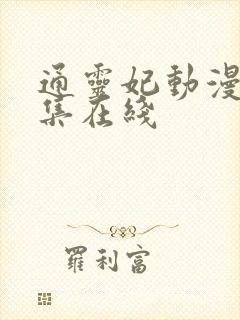 通靈妃動漫
集在綫
羅利富